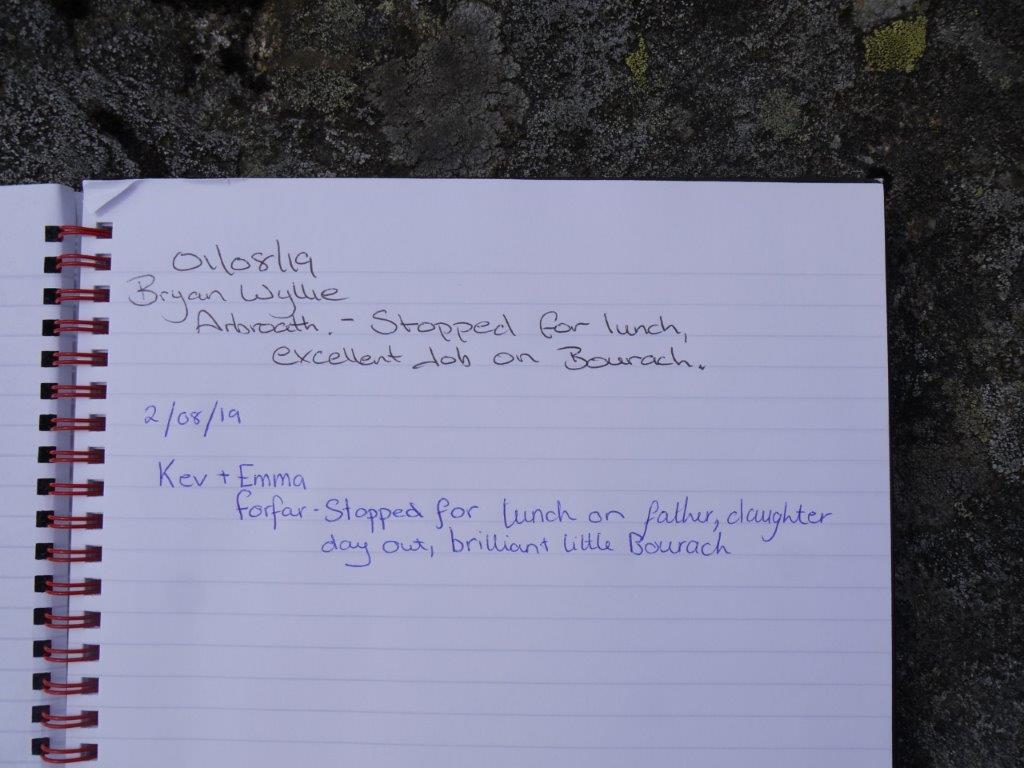 01/08/19
Bryan Wyllie
Arbroath. - Stopped for lunch,
excellent Job on Bourach.
2/08/19
Kev + Emma
Forfar - Stopped for lunch on father, daughter
day out, brilliant little Bourach